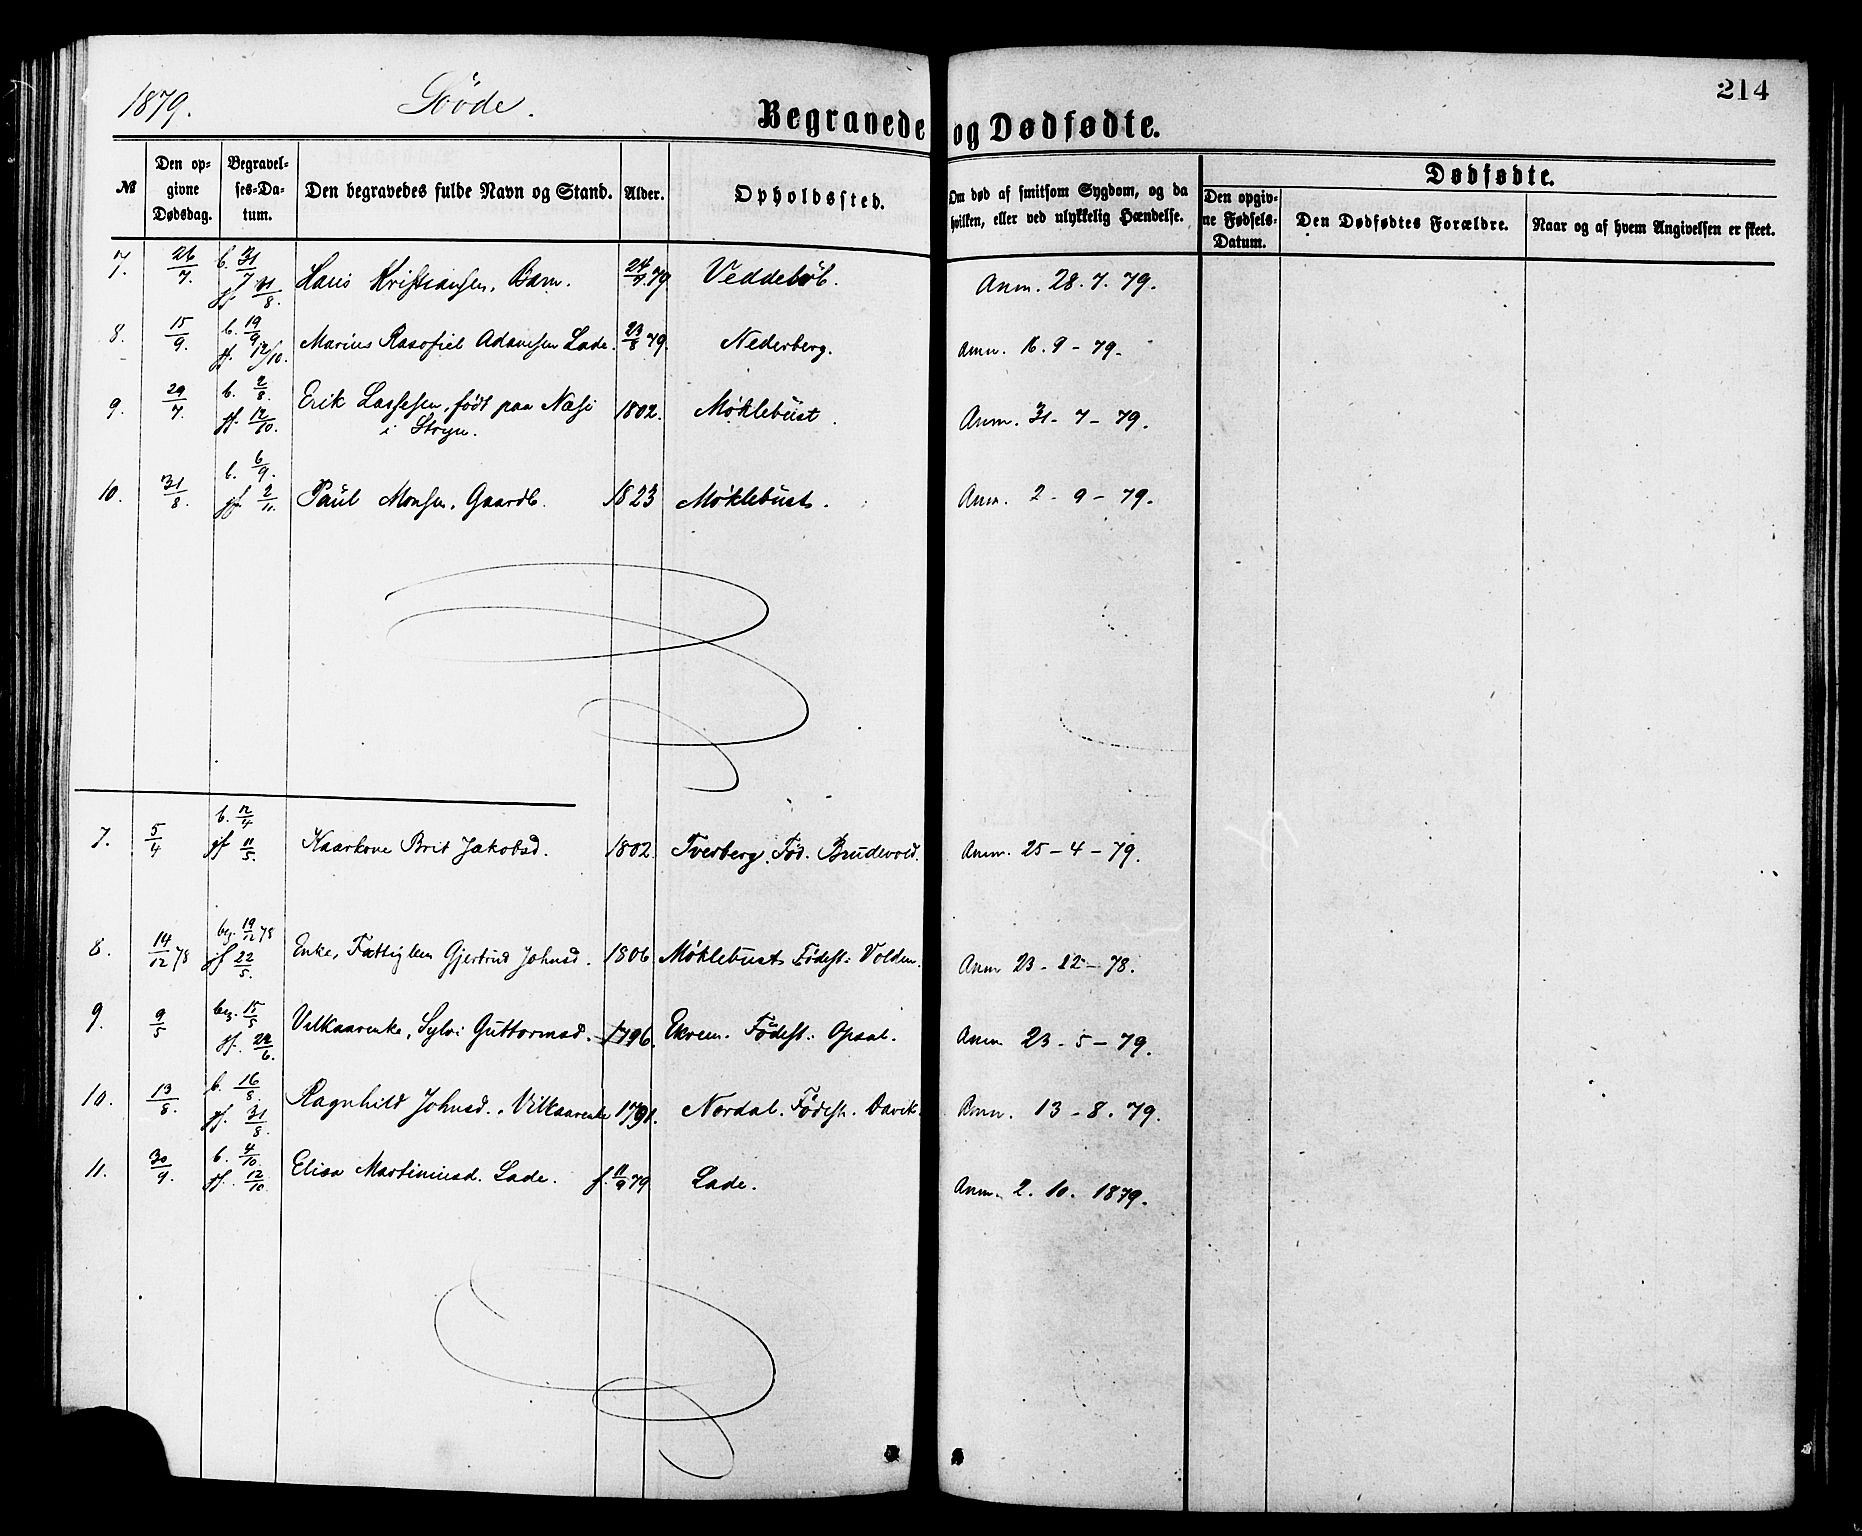 1879. Døde. Begravede og Dødfødte. 214
№ Den opgivne Dødsdag. Begravelses-Datum. Den begravedes fulde Navn og Stand. Alder. Opholdssted. Om død af smitsom Sygdom, og da hvilken, eller ved ulykkelig Hændelse. Dødfødte.
Den opgivne Fødsels-Datum. Den Dødfødtes Forældre. Naar og af hvem Angivelsen er skeet.
7. 26/7. b. 31/7 Hans Kristiansen, Barn. 24/7 79 Veddebøl. Anm. 28. 7. 79.
8. 15/9. b. 19/9 jf. 12/10. Marius Rasofiel Adamsen Lade. 23/8 79. Nederberg. Anm. 16. 9 - 79.
9. 29/7. b. 2/8. jf. 12/10. Erik Lassesen, født paa Næsi 1802. Møklebust. Anm. 31 - 7 - 79.
i Stryn.
10. 31/8. b. 6/9. jf. 2/11. Paul Monsen, Gaardb. 1823 Møklebust. Anm. 2 - 9 - 79.
7. 5/4 b. 12/4 jf 11/5. Kaarkone Brit Jakobsd. 1802. Tverberg. Fød. Brudevold. Anm. 25 - 4 - 79.
8. 14/12 78 beg. 19/12 78 jf 22/5. Enke, Fattiglem Gjertrud Johnsd. 1806. Møklebust Fødest: Volden. Anm 23 - 12 - 78.
9. 9/5 beg. 15/5 jf. 22/6. Vilkaarenke, Sylvi Guttormsd. 1796. Ekrem. Fødest: Opsal. Anm 23 - 5 - 79.
10. 13/8. b. 16/8. jf. 31/8 Ragnhild Johnsd. Vilkaarenke 1791. Nordal. Fødest. Davik. Anm. 13 - 8. 79.
11. 30/9. b. 4/10. jf. 12/10. Elisa Martinusd. Lade. f. 11/9 79 Lade. Anm. 2. 10. 1879.